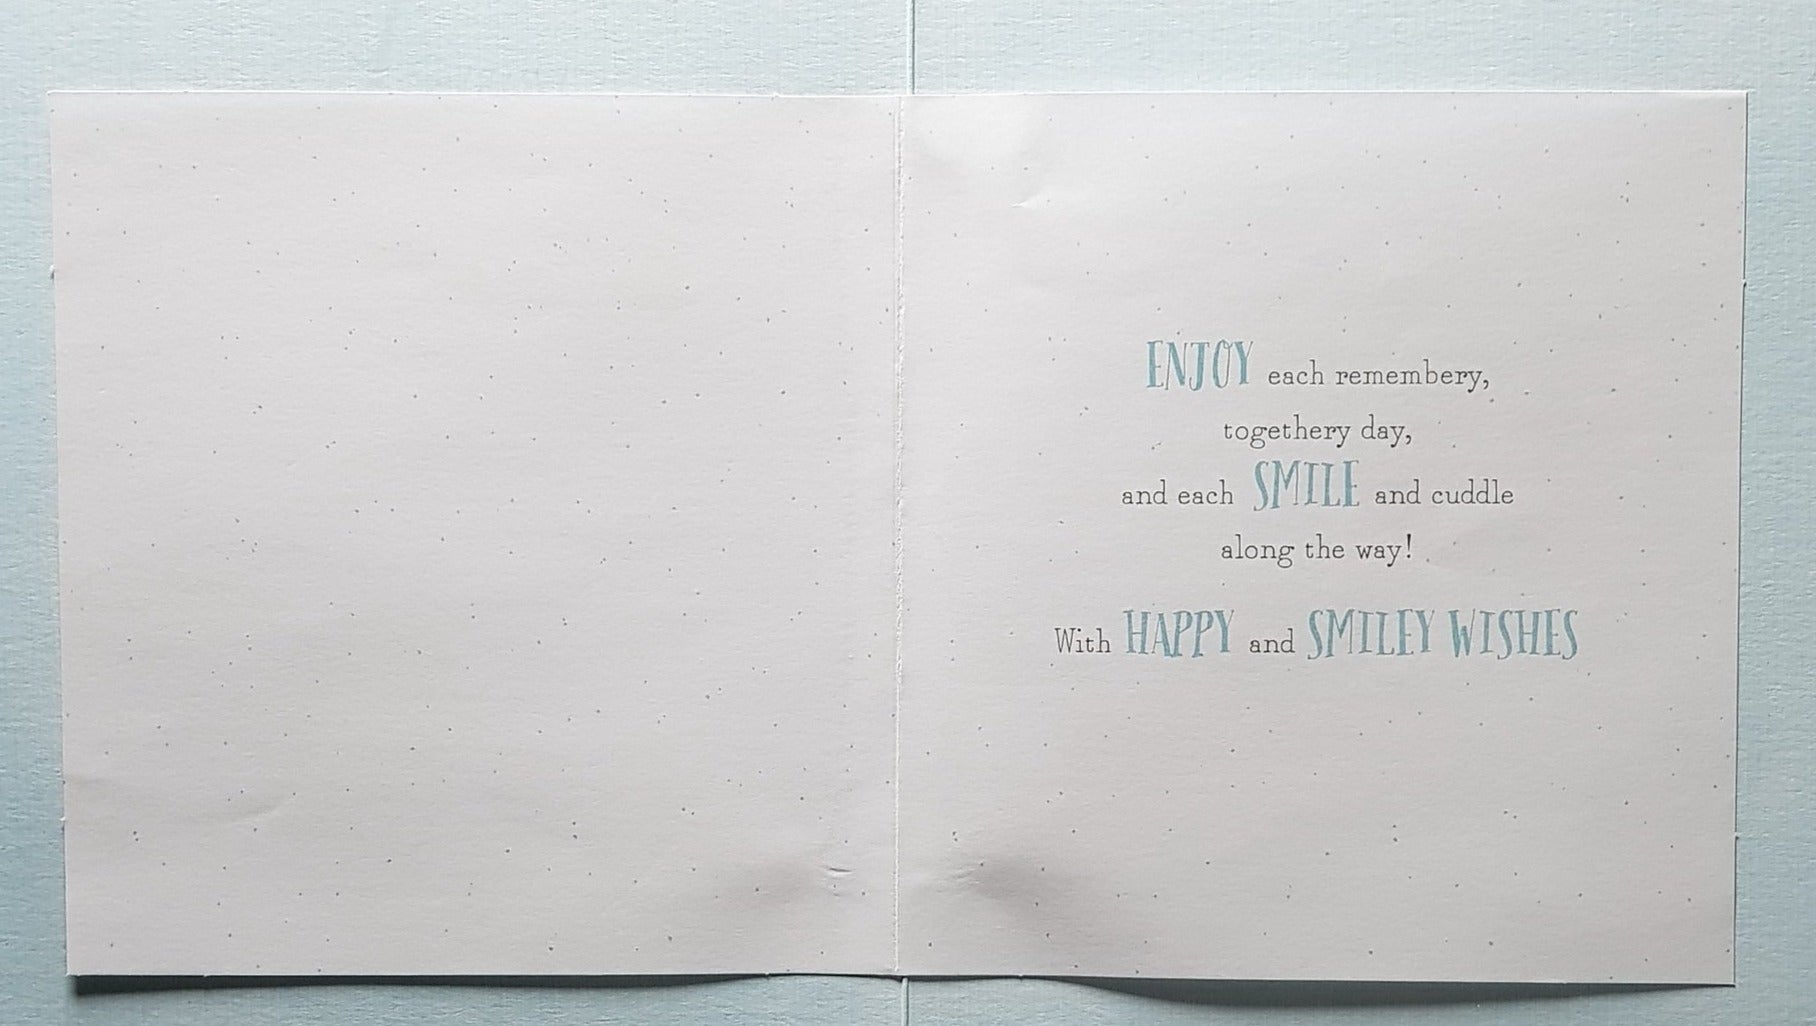 ENJOY each remembery,
togethery day,
and each SMILE and cuddle
along the way!
With HAPPY and SMILEY WISHES